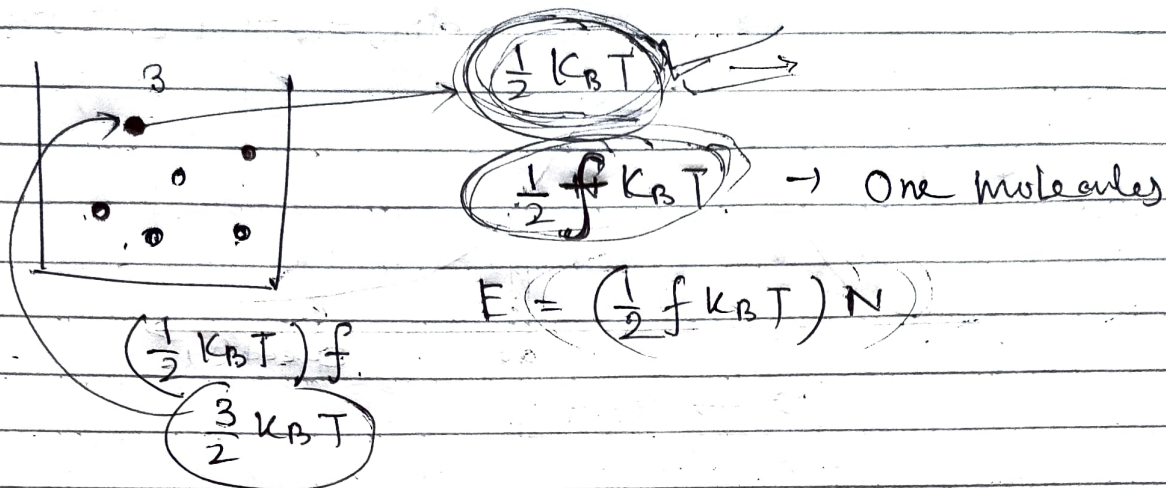 1/2 K_B T
3
1/2 f K_B T → One molecules
E = (1/2 f K_B T) N
(1/2 K_B T) f
3/2 K_B T